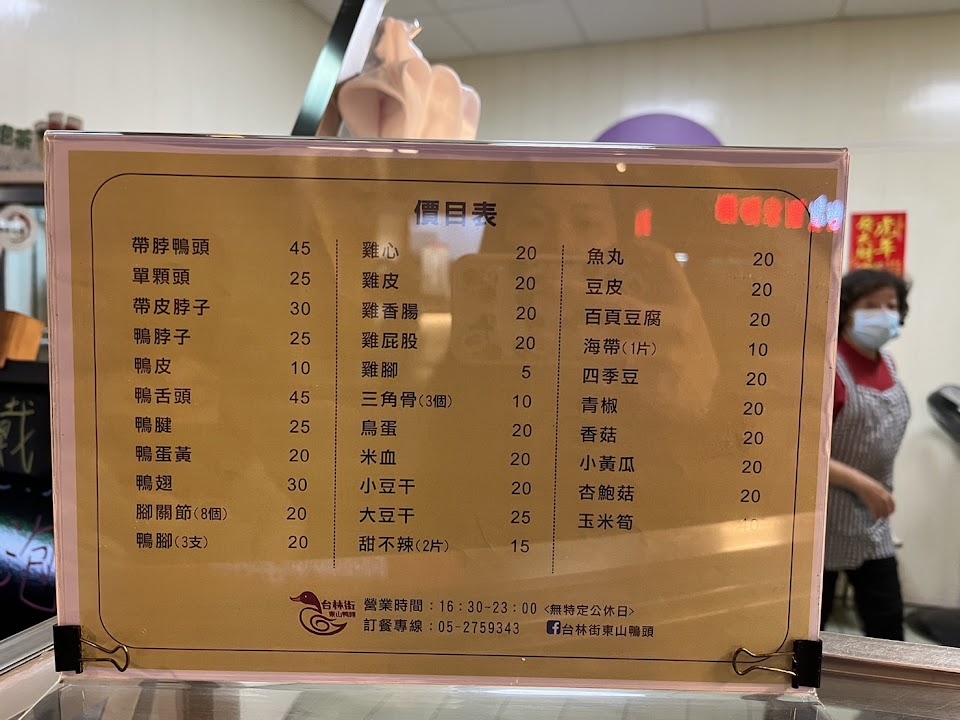 價目表
帶脖鴨頭 45
單顆頭 25
帶皮脖子 30
鴨脖子 25
鴨皮 10
鴨舌頭 45
鴨腱 25
鴨蛋黃 20
鴨翅 30
腳關節(8個) 20
鴨腳(3支) 20
雞心 20
雞皮 20
雞香腸 20
雞屁股 20
雞腳 5
三角骨(3個) 10
鳥蛋 20
米血 20
小豆干 20
大豆干 25
甜不辣(2片) 15
魚丸 20
豆皮 20
百頁豆腐 20
海帶(1片) 10
四季豆 20
青椒 20
香菇 20
小黃瓜 20
杏鮑菇 20
玉米筍
台林街
東山鴨頭
營業時間：16：30-23：00 <無特定公休日>
訂餐專線：05-2759343 f台林街東山鴨頭
虎年
戴